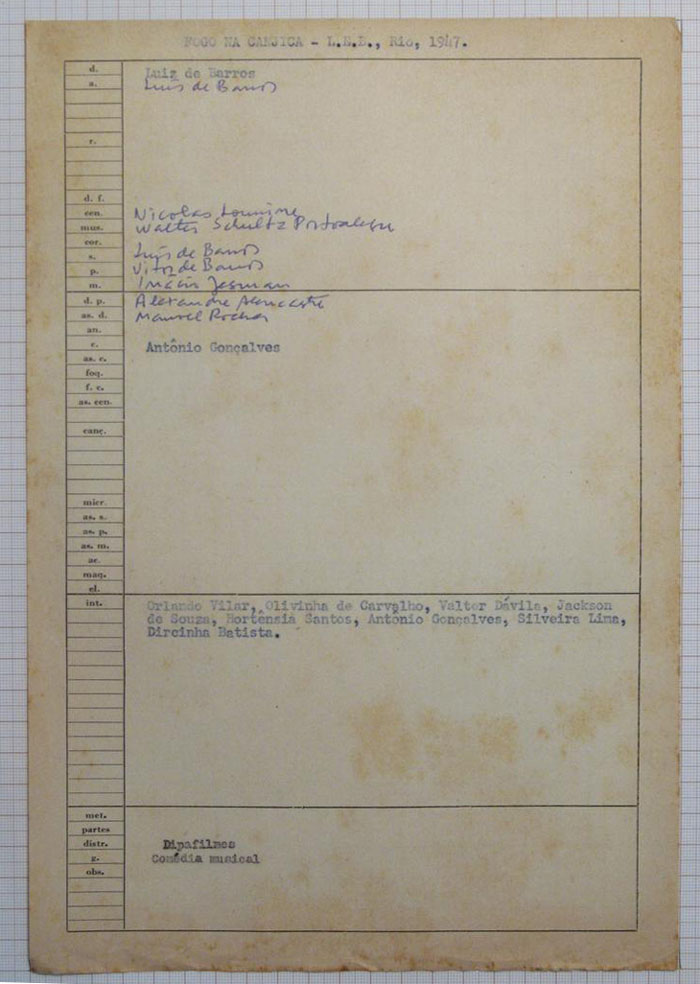 FOGO NA CANJICA - L.E.B., Rio, 1947.
d. Luiz de Barros
a. Luis de Barros
r.
d. f.
cen. Nicolas Lounine
mus. Walter Schultz Portoalegre
cor.
s. Luis de Barros
p. Vitor de Barros
m. Inácio
d. p. Alexandre Alencastre
as. d. Manoel Rocha
an.
c. Antônio Gonçalves
as. c.
foq.
f. c.
as. cen.
canç.
micr.
as. s.
as. p.
as. m.
ac.
maq.
el.
int. Orlando Vilar, Olivinha de Carvalho, Valter Dávila, Jackson
de Souza, Hortênsia Santos, Antônio Gonçalves, Silveira Lima,
Dircinha Batista.
met.
partes
distr. Dipafilmes
g. Comédia musical
obs.